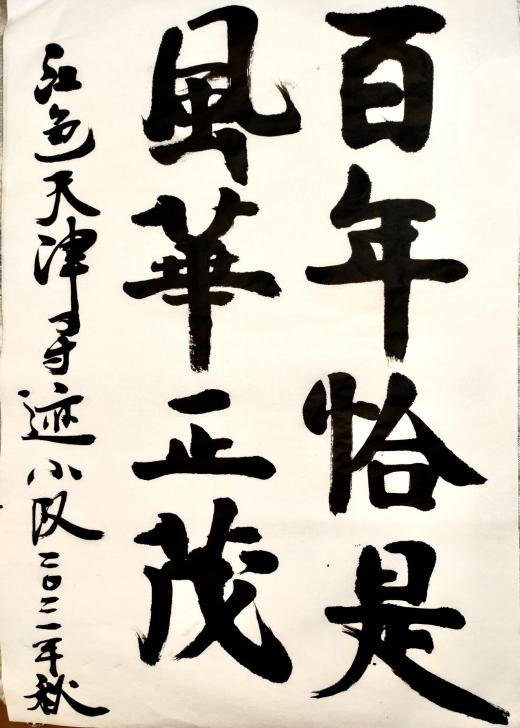 百年恰是
風華正茂
红色天津寻迹小队二〇二一年秋